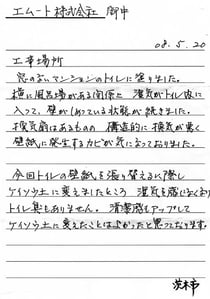 エムート株式会社 御中
08.5.20
工事場所
窓のないマンションのトイレに塗りました。
横に風呂場がある関係上 湿気がトイレ内に
入って、壁がしめっている状態が続きました。
換気扇はあるものの 構造的に換気が悪く
壁紙に発生するカビが気になっておりました。
今回トイレの壁紙を張り替えるに際し
ケイソウ土に変えましたところ 湿気を感じなくなり
トイレ臭もありません。清潔感もアップして
ケイソウ土に変えたことはよかったと思っております。
茨木市